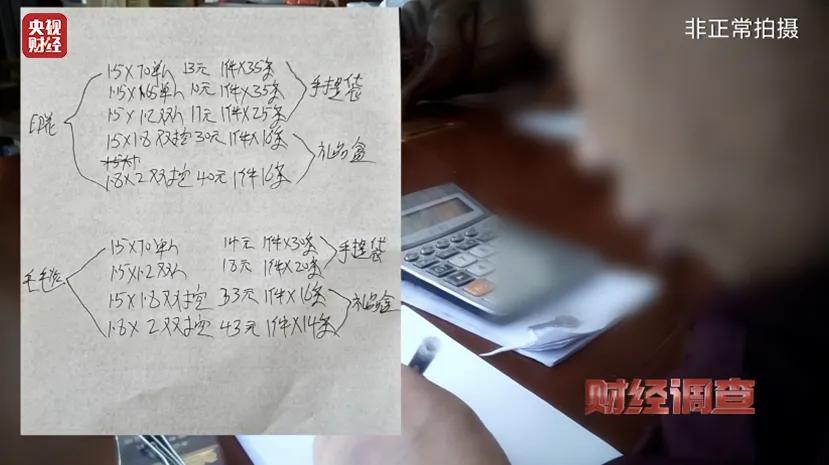 央视
财经
非正常拍摄
印花
1.5×70单人 13元 1件×35条
1.15×1.65单人 10元 1件×35条
1.5×1.2双人 17元 1件×25条
手提袋
1.5×1.8双控 30元 1件×18条
1.8×2双控 40元 1件16条
礼品盒
1.5×70单人 14元 1件×30条
1.5×1.2双人 18元 1件×20条
手提袋
1.5×1.8双控 33元 1件×16条
1.8×2双控 43元 1件×14条
礼品盒
财经调查